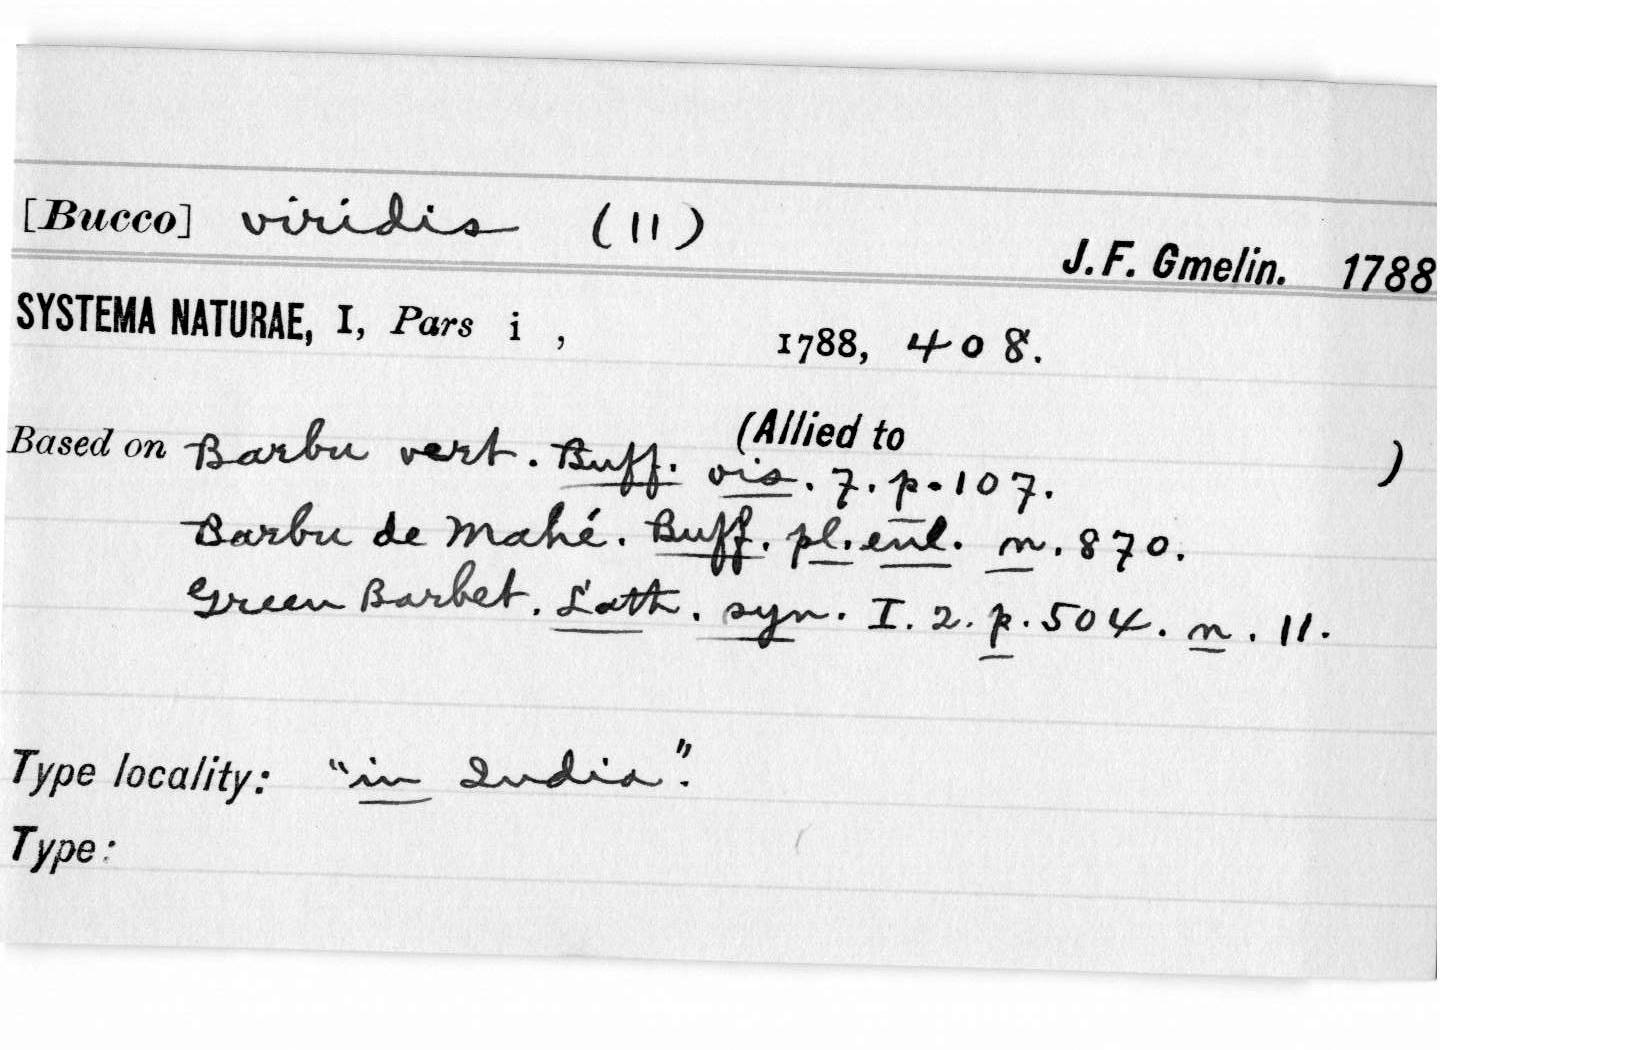 [Bucco] viridis (11)
J. F. Gmelin. 1788
SYSTEMA NATURAE, I, Pars i , 1788, 408.
(Allied to )
Based on Barbu vert. Buff. ois. 7. p. 107.
Barbu de Mahé. Buff. pl. enl. n. 870.
Green Barbet. Lath. syn. I. 2. p. 504. n. 11.
Type locality: "in India".
Type: